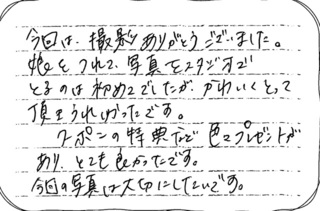 今回は、撮影ありがとうございました。
娘をつれて、写真をスタジオで
とるのは初めてでしたが、かわいくとって
頂きうれしかったです。
クーポンの特典などで色々プレゼントが
あり、とても良かったです。
今回の写真は大切にしたいです。